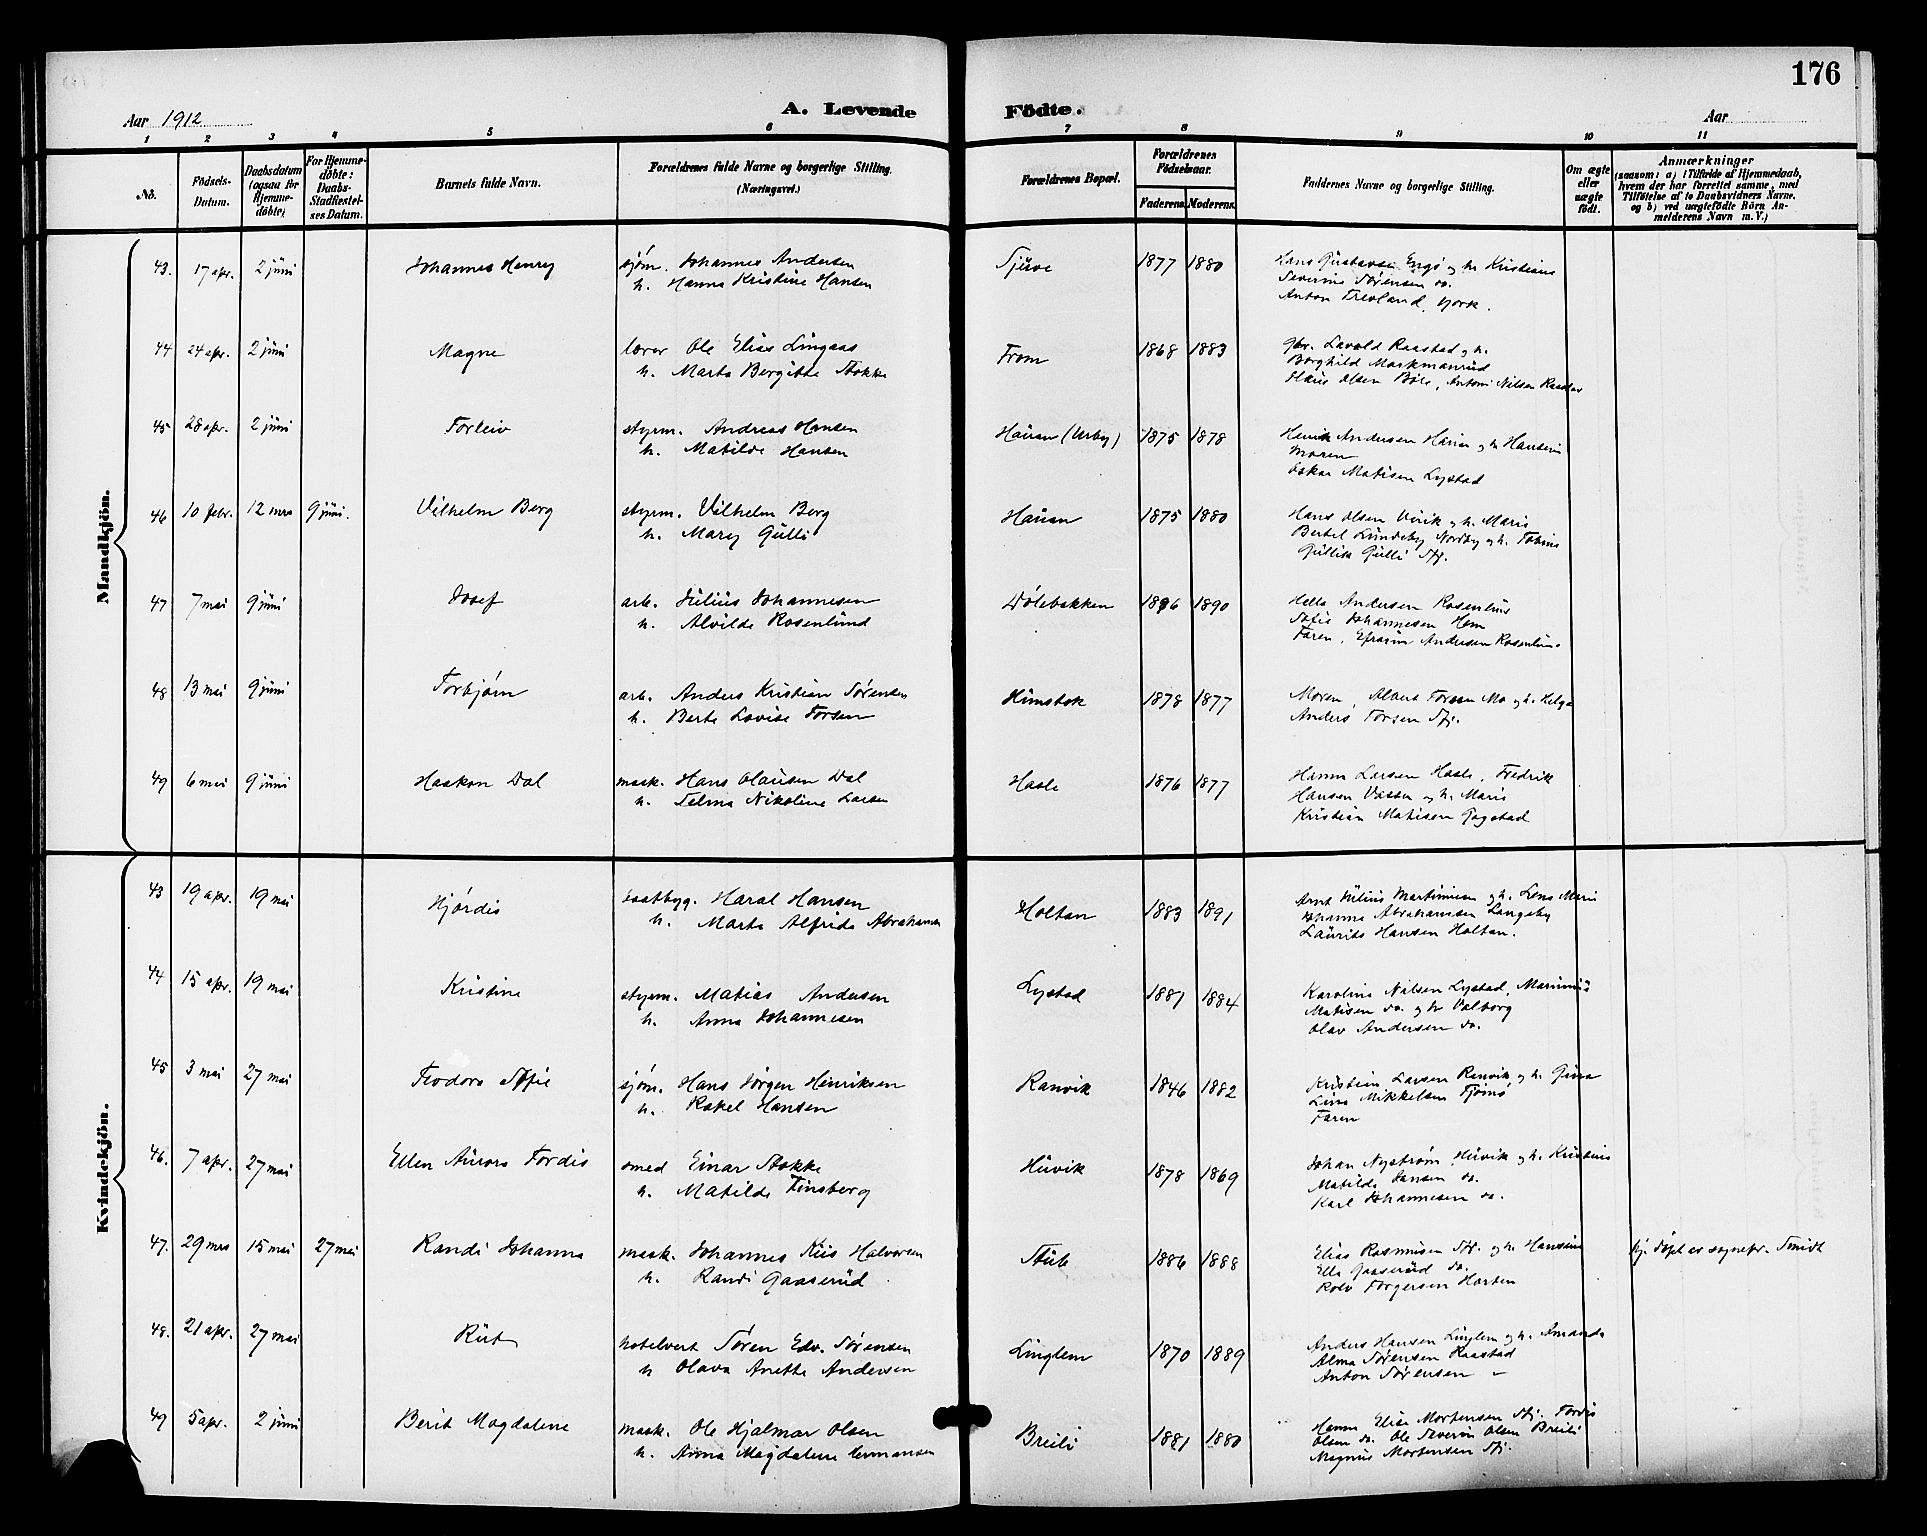 176
Aar 1912
A. Levende
Födte.
Aar
1 2 3 4 5 6 7 8 9 10 11
No.
Födsels-Datum.
Daabsdatum (ogsaa for Hjemme-döbte)
For Hjemme-döbte: Daabs-Stadfæstel-ses Datum.
Barnets fulde Navn.
Forældrenes fulde Navne og borgerlige Stilling. (Næringsvei.)
Forældrenes Bopæl.
Forældrenes Födselsaar.
Faderens. Moderens.
Faddernes Navne og borgerlige Stilling.
Om ægte eller uægte födt.
Anmærkninger
(saasom: a) i Tilfælde af Hjemmedaab,
hvem der har forrettet samme, med
Tilföielse af to Daabsvidners Navne,
og b) ved uægtefödte Börn An-
melderens Navn m. V.)
Mandkjön.
43. 17 apr. 2 juni Johannes Henry sjøm. Johannes Andersen Tjuve 1877 1880 Hans Gustavsen Engø og h. Kristiane
h. Hanna Kristine Hansen Severine Sørensen do.
Anton Trevland, York.
44 24 apr. 2 juni Magne lærer Ole Elias Lingaas From 1868 1883 gbr. Lavold Raastad og h.
h. Marta Bergitte Stokke Borghild Markmanrud
Olsen Bøle, Antoni Nilsen Raastad
45 28 apr. 2 juni Torleiv styrm. Andreas Hansen Hauan (Verby) 1875 1878 Henrik Andersen Hauan og h. Hansine
h. Matilde Hansen Moren
Oskar Matisen Lystad
46 10 febr. 12 mrs 9 juni. Vilhelm Berg styrm. Vilhelm Berg Hauan 1875 1880 Hans Olsen Virik og h. Maria
h. Mary Gulli Bertel Lundeby Nordby og h. Tobine
Gullik Gulli Sfj.
47 7 mai 9 juni Josef arb. Julius Johannesen Dølebakken 1886 1890 Helle Andersen Rosenlund
h. Alvilde Rosenlund Sofie Johannesen Hem
Faren, Efraim Andersen Rosenlund
48 13 mai 9 juni Torbjørn arb. Anders Kristian Sørensen Himstok 1878 1877 Moren, Albert Torsen Mo og h. Helga
h. Berte Lovise Torsen Anders Torsen Sfj.
49 6 mai 9 juni Haakon Dal mask. Hans Olausen Dal Hasle 1876 1877 Hanna Larsen Hasle, Fredrik
h. Selma Nikoline Larsen Hansen Vatten og h. Maria
Kristian Matisen Gogstad
Kvindekjön.
43 19 apr. 19 mai Hjørdis baatbygg. Haral Hansen Holtan 1883 1891 Arnt Julius Martinusen og h. Lena Marie
h. Marta Alfrida Abrahamsen Johanna Abrahamsen Langeby
Laurits Hansen Holtan.
44 15 apr. 19 mai Kristine styrm. Matias Andersen Lystad 1881 1884 Karoline Nilsen Lystad, Marinius
h. Anna Johannesen Matisen do. og h. Valborg
Olav Andersen do.
45 3 mai 27 mai Teodora Sofie sjøm. Hans Jørgen Henriksen Ranvik 1846 1882 Kristian Larsen Ranvik og h. Gina
h. Rakel Hansen Lina Mikkelsen Tjømø
Faren
46. 7 apr. 27 mai Ellen Aurora Tordis smed Einar Stokke Huvik 1878 1869 Johan Nystrøm Huvik og h. Kristine
h. Matilde Tinsberg Matilde Jansen do.
Karl Johannesen do.
47. 29 mrs 15 mai 27 mai Randi Johanna mask. Johannes Kiis Halvorsen Stub 1886 1888 Elias Rasmusen Sfj. og h. Hansine hj. døpt av sognepr. Smidt
h. Randi Gaaserud Ella Gaaserud do.
Rolv Torgersen Horten
48. 21 apr. 27 mai Rut hotelvert Søren Edv. Sørensen Linglem 1870 1889 Anders Hansen Linglem og h. Amanda
h Olava Anette Andersen Alma Sørensen Raastad
Anton Sørensen –
49 5 apr. 2 juni Berit Magdalene mask. Ole Hjalmar Olsen Breili 1881 1880 Hanna Elise Mortensen Sfj. Tordis
h. Anna Magdalene Hermansen Olsen do. Ole Severin Olsen Breili
Magnus Mortensen Sfj.